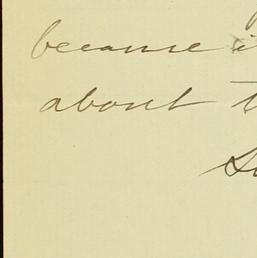 because i
about t